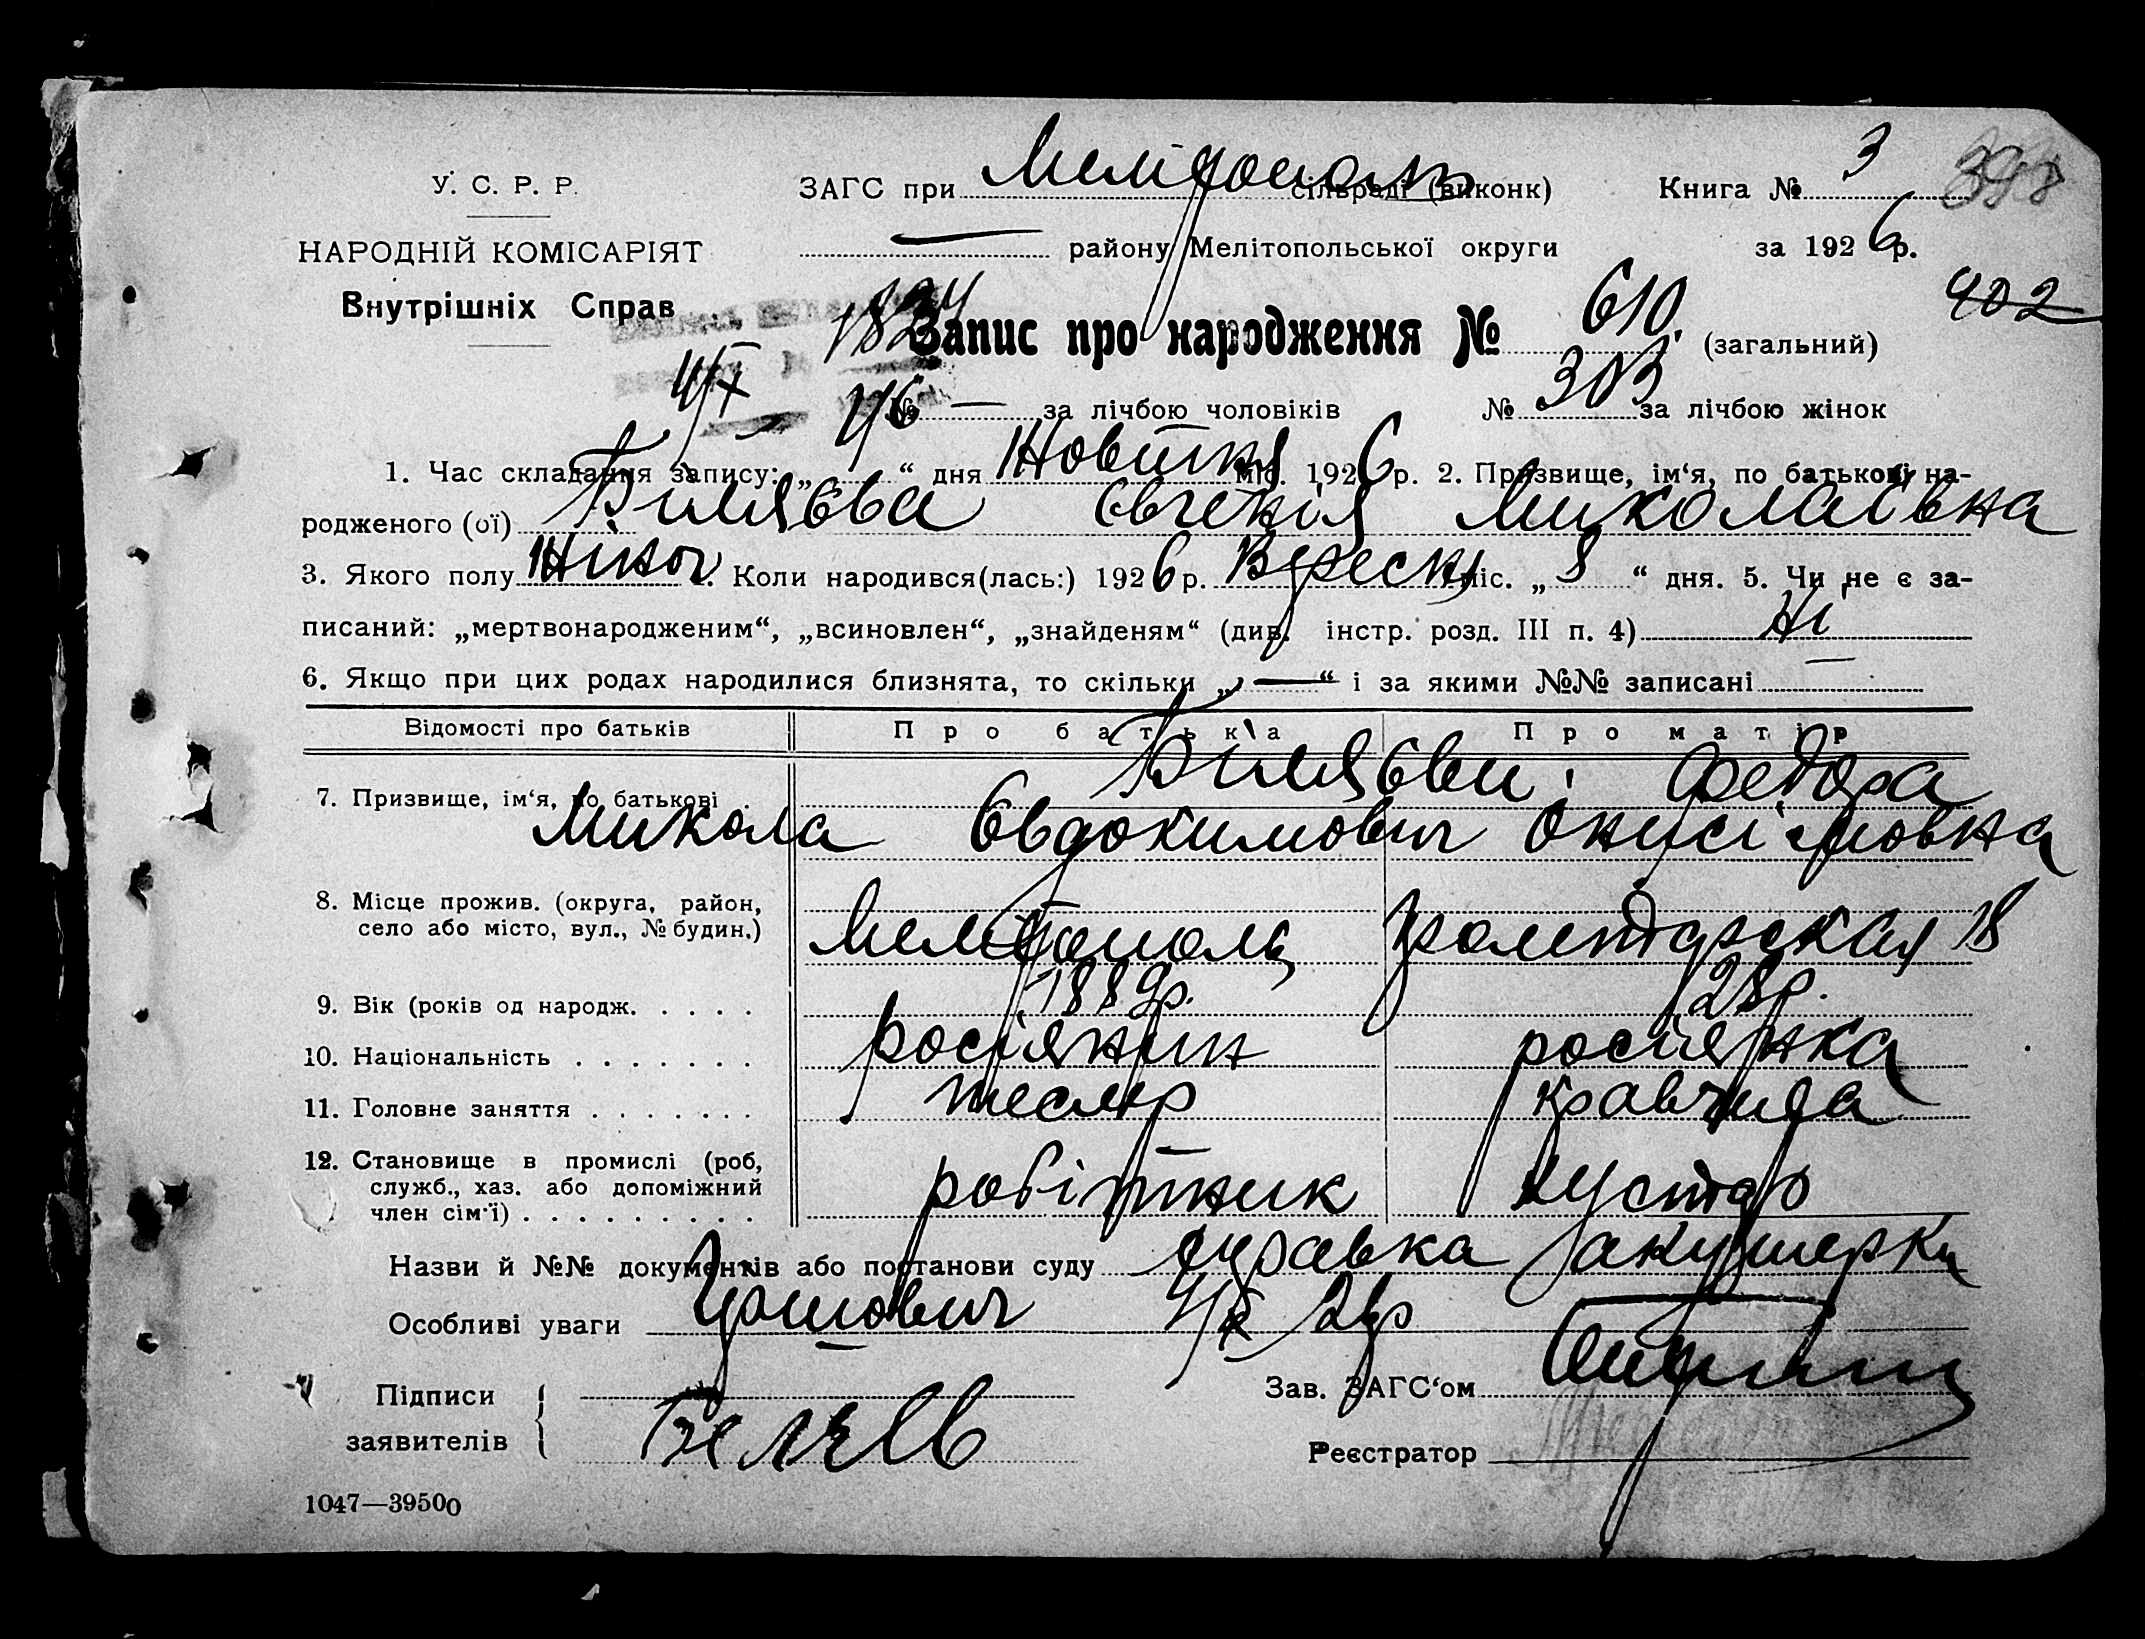 У. С. Р. Р.
НАРОДНІЙ КОМІСАРІЯТ
Внутрішніх Справ
ЗАГС при Мелітополь сільраді (виконк)
Книга № 3
398
— району Мелітопольської округи
за 1926 р.
402
1824
Запис про народження № 610. (загальний)
№ — за лічбою чоловіків № 303 за лічбою жінок
1. Час складання запису: „ 4/6 “ дня Жовтня міс. 1926 р. 2. Призвище, ім‘я, по батькові на-
родженого (ої) Биляєва Євгенія Миколаївна
3. Якого полу Жіноч. Коли народився(лась:) 1926 р. Вересня міс. „ 8 “ дня. 5. Чи не є за-
писаний: „мертвонародженим“, „всиновлен“, „знайденям“ (див. інстр. розд. III п. 4) Ні
6. Якщо при цих родах народилися близнята, то скільки „ — “ і за якими №№ записані —
Відомості про батьків Про батька Про матір
7. Призвище, ім‘я, по батькові Биляєви: Федора
Микола Євдокимович Онисімовна
8. Місце прожив. (округа, район,
село або місто, вул., № будин.) Мелітополь 18
9. Вік (років од народж. . . . . 1889р. 28р.
10. Національність . . . . . . . росіянин росіянка
11. Головне заняття . . . . . . . тесляр кравчиха
12. Становище в промислі (роб,
служб., хаз. або допоміжний
член сім‘ї) . . . . . . . . . робітник кустар
Назви й №№ документів або постанови суду справка акушерки
Особливі уваги
Підписи
заявителів
Беляев
Зав. ЗАГС‘ом
Реєстратор
1047—39500